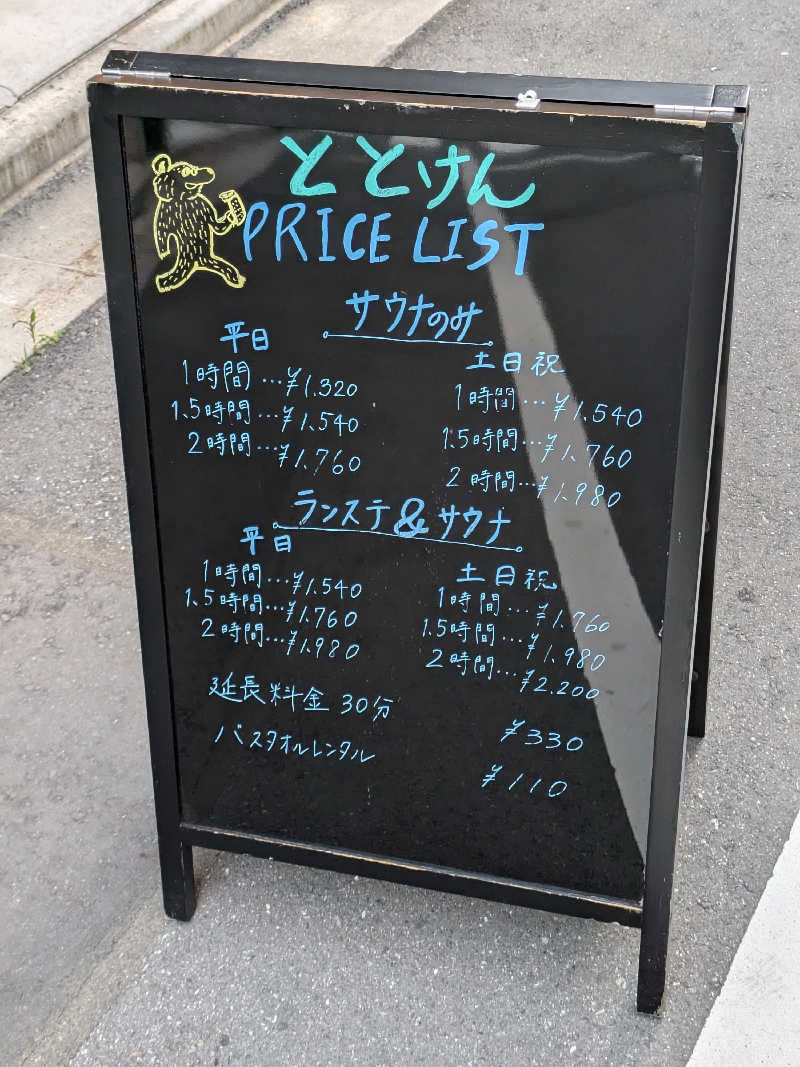 ととけん
PRICE LIST
サウナのみ
平日
1時間…¥1.320
1.5時間…¥1.540
2時間…¥1.760
土日祝
1時間…¥1.540
1.5時間…¥1.760
2時間…¥1.980
ランステ&サウナ
平日
1時間…¥1.540
1.5時間…¥1.760
2時間…¥1.980
土日祝
1時間…¥1.760
1.5時間…¥1.980
2時間…¥2.200
延長料金 30分 ¥330
バスタオルレンタル ¥110